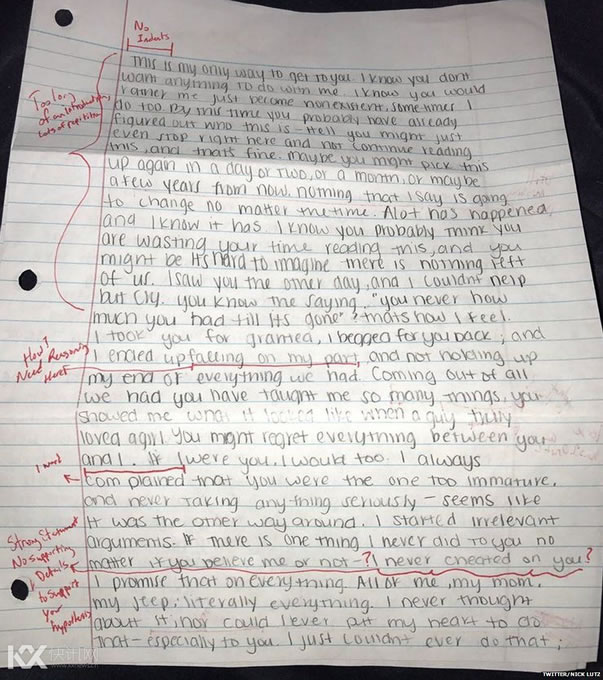 No
Indents
This is my only way to get to you. I know you don't
want anything to do with me. I know you would
rather me just become nonexistent, sometimes I
do too. By this time you probably have already
figured out who this is - Hell you might just
even stop right here and not continue reading
this, and thats fine. maybe you might pick this
up again in a day or two, or a month, or maybe
a few years from now. nothing that I say is going
to change no matter the time. Alot has happened
and I know it has. I know you probably think you
are wasting your time reading this, and you
might be. Its hard to imagine there is nothing left
of us. I saw you the other day, and I couldnt help
but cry. you know the saying, "you never how
much you had till its gone" thats how I feel.
I took you for granted, I begged for you back; and
I ended up falling on my part, and not holding up
my end of everything we had. Coming out of all
we had you have taught me so many things, you
showed me what it looked like when a guy truly
loved a girl. You might regret everything between you
and I. If I were you, I would too. I always
complained that you were the one too immature,
and never taking anything seriously - seems like
it was the other way around. I started irrelevant
arguments. If there is one thing I never did to you no
matter if you believe me or not -? I never cheated on you?
I promise that on everything. All of me, my mom,
my jeep, literally everything. I never thought
about it, nor could I ever put my heart to do
that - especially to you. I just couldnt ever do that;
Too long
of an introduction,
lots of repetition
How?
Need Reasoning
Here!
1 word
Strong Statement
No supporting
Details
to support
your
hypothesis
KX
TWITTER/NICK LUTZ